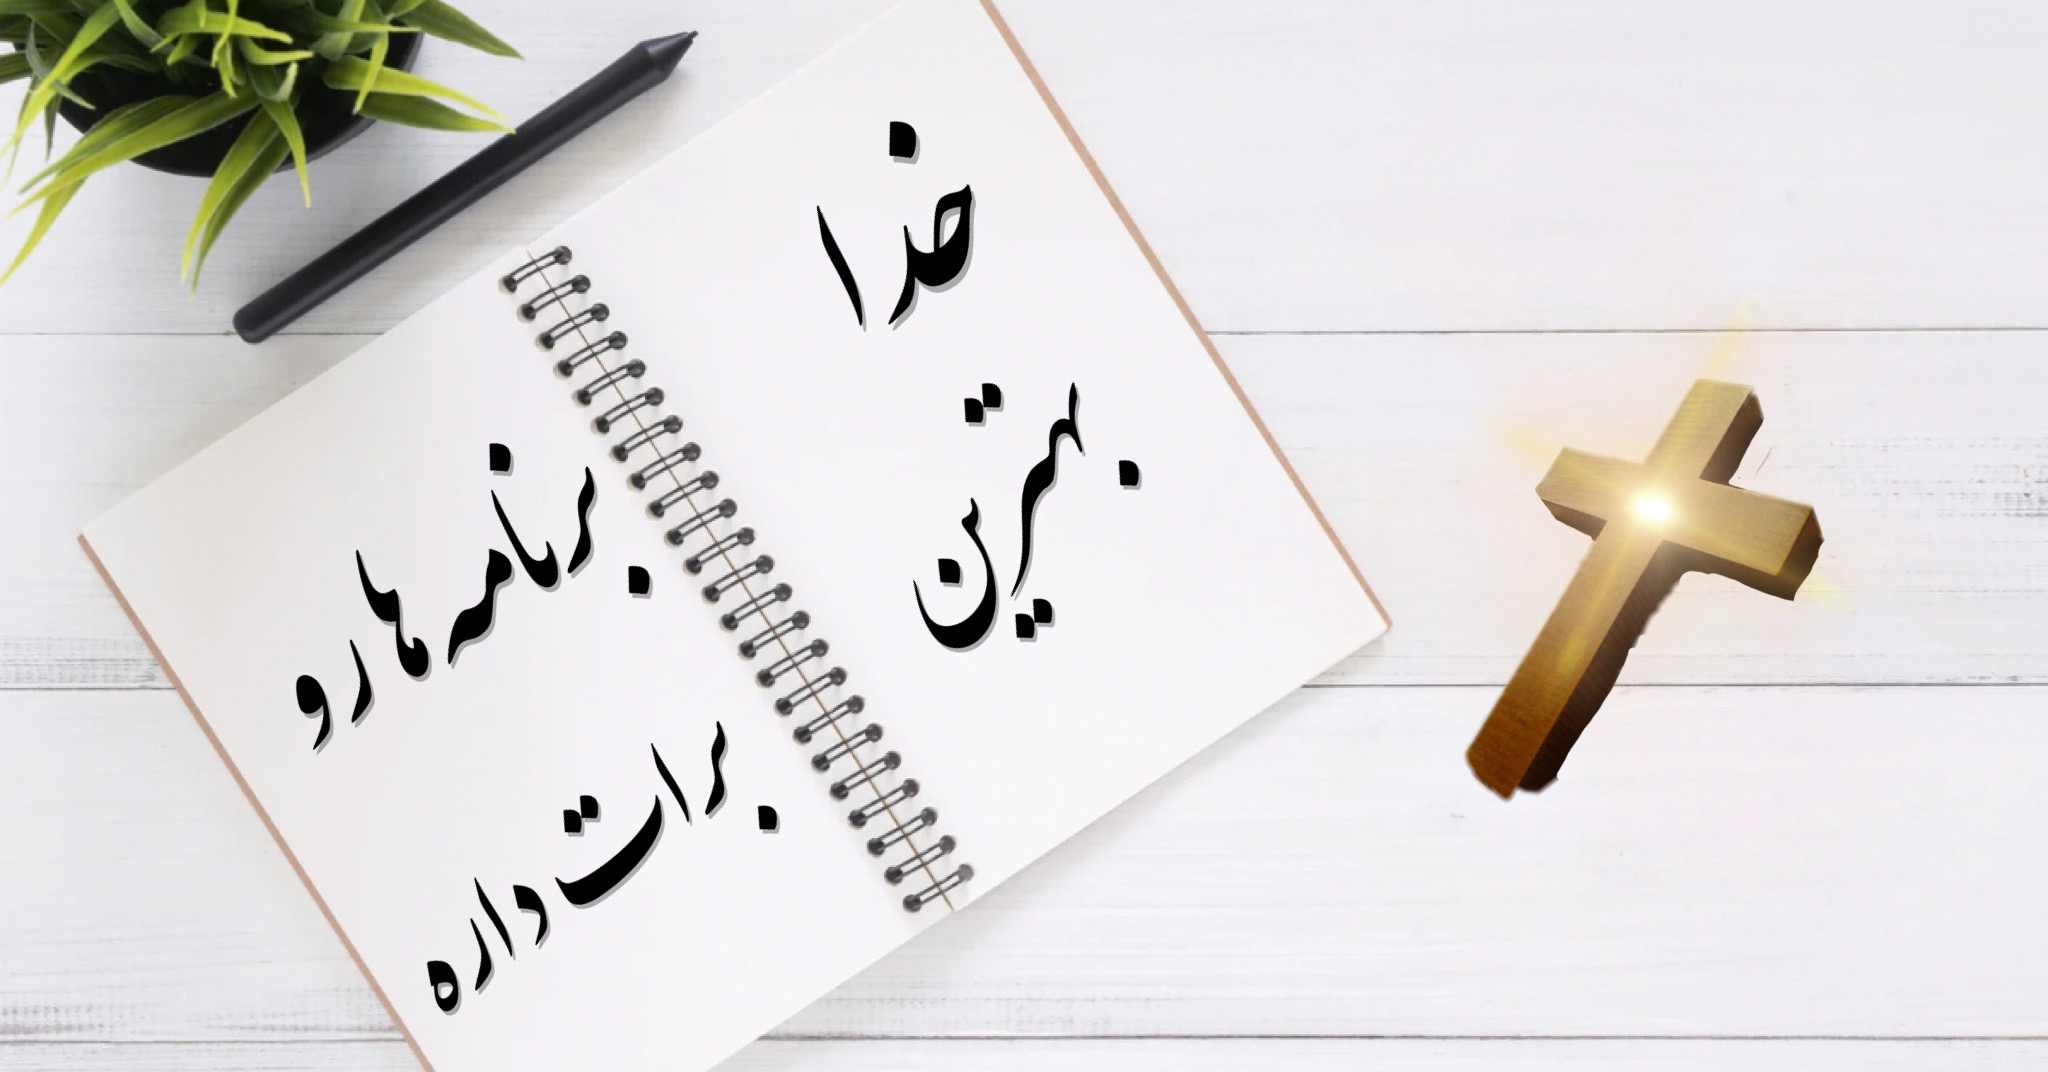 خدا
بهترین
برنامه ها رو
برات داره